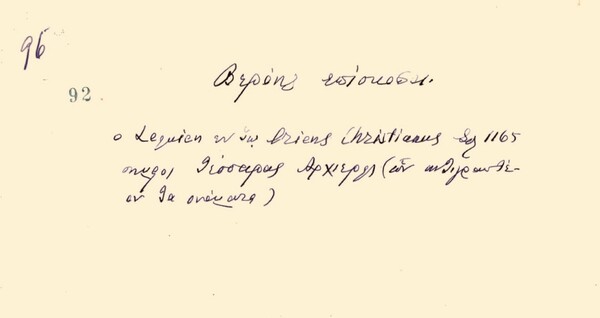 96
92.
Βεροίης επίσκοποι.
ο Lequien εν τω Oriens Christianus Σελ 1165
τέσσαρας Αρχιερείς (ων
τα ονόματα)